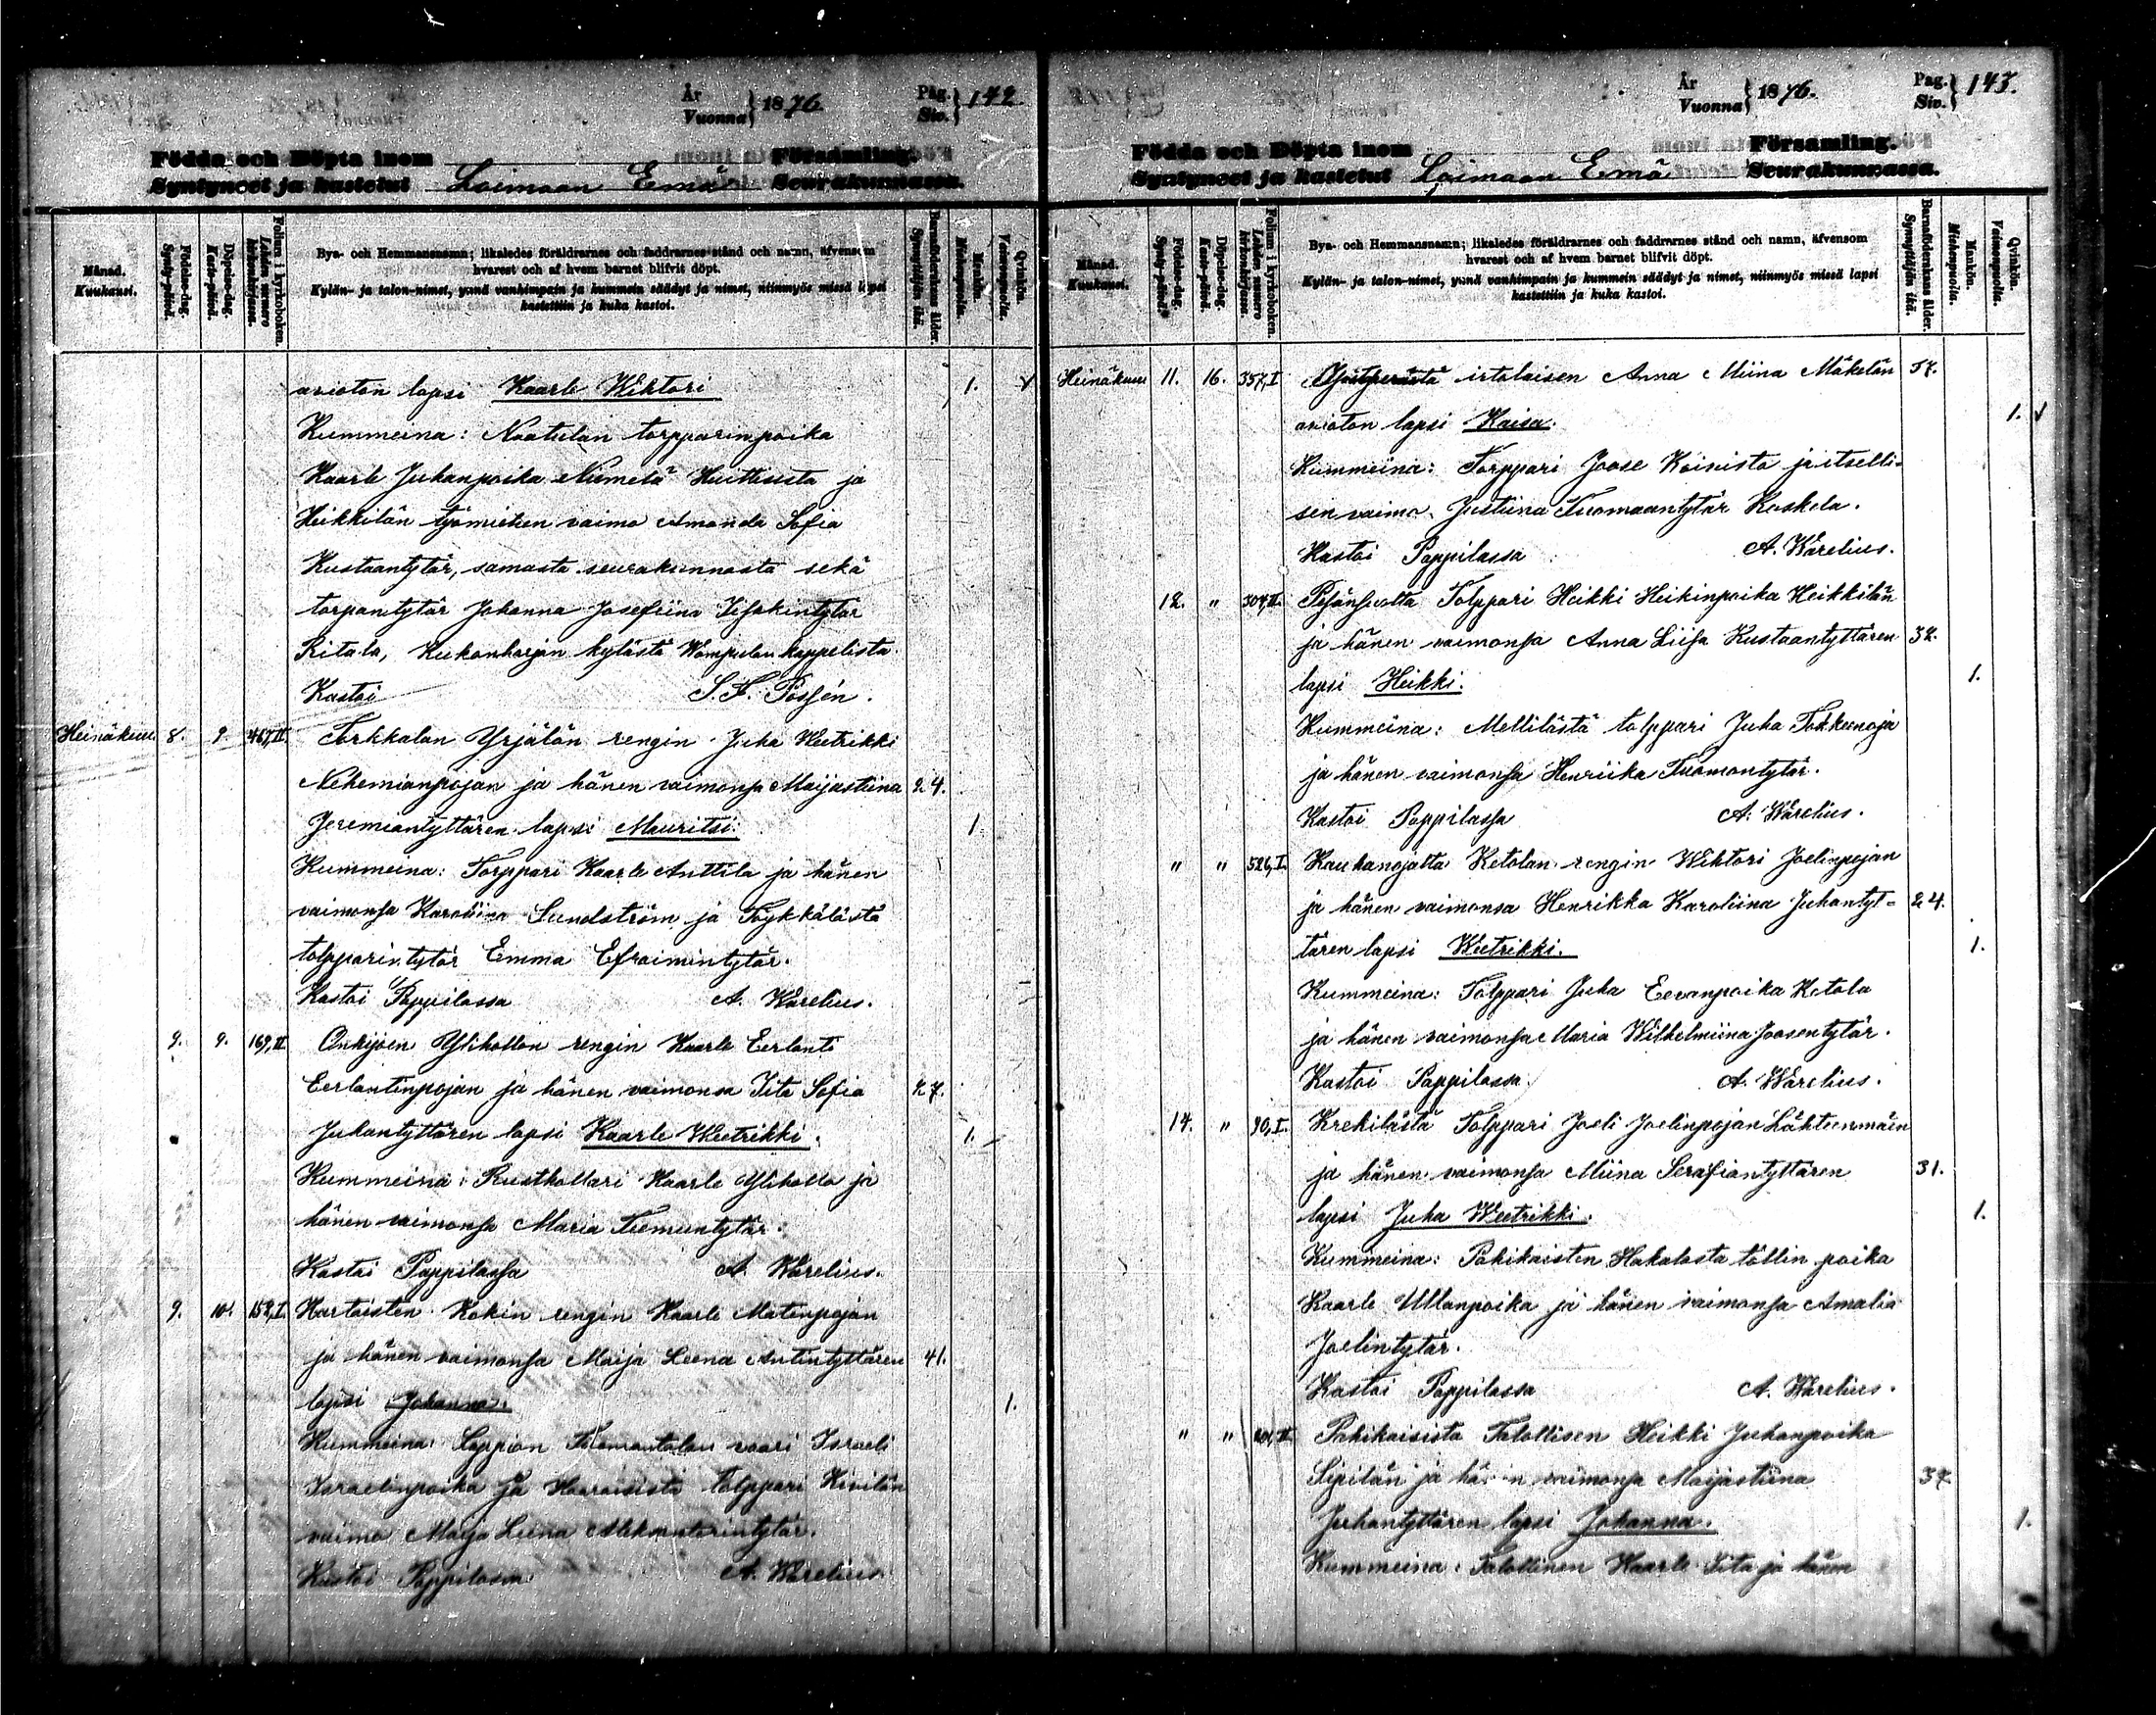 År
Vuonna } 1876
Pag.
Siv. } 142
Födda och Döpta inom Församling.
Syntyneet ja kastetut Loimaan Emä Seurakunnassa.
Månad.
Kuukausi.
Födelse-dag.
Synty-päivä.
Döpelse-dag.
Kaste-päivä.
Folium i kyrkoboken.
Lehden numero kirkonkirjassa.
Bys- och Hemmansnamn; likaledes föräldrarnes och faddrarnes stånd och namn, äfvensom
hvarest och af hvem barnet blifvit döpt.
Kylän- ja talon-nimet, ynnä vanhimpain ja kummein säädyt ja nimet, niinmyös missä lapsi
kastettiin ja kuka kastoi.
Barnaföderskans ålder.
Synnyttäjän ikä.
Mankön.
Miehenpuolia.
Qvinkön.
Vaimonpuolia.
avioton lapsi Kaarle Wihtori 1.
Kummeina: Naatulan torpparinpoika
Kaarle Juhanpoika Niemelä Huittisista ja
Heikkilän työmiehen vaimo Amanda Sofia
Kustaantytär, samasta seurakunnasta sekä
torpantytär Johanna Josefiina Iisakintytär
Ritala, Kukonharjan kylästä Wampulan kappelista
Kastoi
Heinäkuu 8. 9. 467,II Torkkalan Yrjälän rengin Juha Weetrikki
Nehemianpojan ja hänen vaimonsa Maijastiina 24.
Jeremiantyttären lapsi Mauritsi. 1.
Kummeina: Torppari Kaarle Anttila ja hänen
vaimonsa Karoliina Sundström ja Töykkälästä
tolpparintytär Emma Efraimintytär.
Kastoi Pappilassa A. Warelius.
9. 9. 169,II Onkijoen Ylihollon rengin Kaarle Eerlanti
Eerlantinpojan ja hänen vaimonsa Iita Sofia 27.
Juhantyttären lapsi Kaarle Weetrikki. 1.
Kummeina: Rusthollari Kaarle Ylihollo ja
hänen vaimonsa Maria Teemuntytär.
Kastoi Pappilassa A. Warelius.
9. 10. 152,I Hartoisten Kokin rengin Kaarle Matinpojan
ja hänen vaimonsa Maija Leena Antintyttären 41.
lapsi Johanna. 1.
Kummeina: Lappion vaari Israeli
Israelinpoika ja tolppari Kivilän
vaimo Maija Leena Aleksanterintytär.
Kastoi Pappilassa A. Warelius
År
Vuonna } 1876.
Pag.
Siv. } 143.
Födda och Döpta inom Församling.
Syntyneet ja kastetut Loimaan Emä Seurakunnassa.
Månad.
Kuukausi.
Födelse-dag.
Synty-päivä.
Döpelse-dag.
Kaste-päivä.
Folium i kyrkoboken.
Lehden numero kirkonkirjassa.
Bys- och Hemmansnamn; likaledes föräldrarnes och faddrarnes stånd och namn, äfvensom
hvarest och af hvem barnet blifvit döpt.
Kylän- ja talon-nimet, ynnä vanhimpain ja kummein säädyt ja nimet, niinmyös missä lapsi
kastettiin ja kuka kastoi.
Barnaföderskans ålder.
Synnyttäjän ikä.
Mankön.
Miehenpuolia.
Qvinkön.
Vaimonpuolia.
Heinäkuu 11. 16. 357,I irtolaisen Anna Miina Mäkelän 37.
avioton lapsi Kaisa. 1.
Kummeina: Torppari Joose Koivisto ja itselli-
sen vaimo Justiina Tuomaantytär Koskela.
Kastoi Pappilassa A. Warelius.
12. " 304,II. Pesänsuolta Tolppari Heikki Heikinpoika Heikkilän
ja hänen vaimonsa Anna Liisa Kustaantyttären 32.
lapsi Heikki. 1.
Kummeina: Mellilästä tolppari Juha
ja hänen vaimonsa Henriika Tuomontytär.
Kastoi Pappilassa A. Warelius.
" " 526,I Kauhanojalta Ketolan rengin Wihtori Joelinpojan
ja hänen vaimonsa Henrikka Karoliina Juhantyt- 24.
tären lapsi Weetrikki. 1.
Kummeina: Tolppari Juha Eevanpoika Ketola
ja hänen vaimonsa Maria Wilhelmiina Joosentytär.
Kastoi Pappilassa. A. Warelius.
14. " 90,I Krekilästä Tolppari Joeli Joelinpojan Lähteenmäen
ja hänen vaimonsa Miina Serafiantyttären 31.
lapsi Juha Weetrikki. 1.
Kummeina: Pahikaisten Hakalasta töllin poika
Kaarle Ullanpoika ja hänen vaimonsa Amalia
Joelintytär.
Kastoi Pappilassa A. Warelius.
" " Pahikaisista Talollisen Heikki Juhanpoika
Sipilän ja hänen vaimonsa Maijastiina 37.
Juhantyttären lapsi Johanna. 1.
Kummeina: Talollinen Kaarle ja hänen